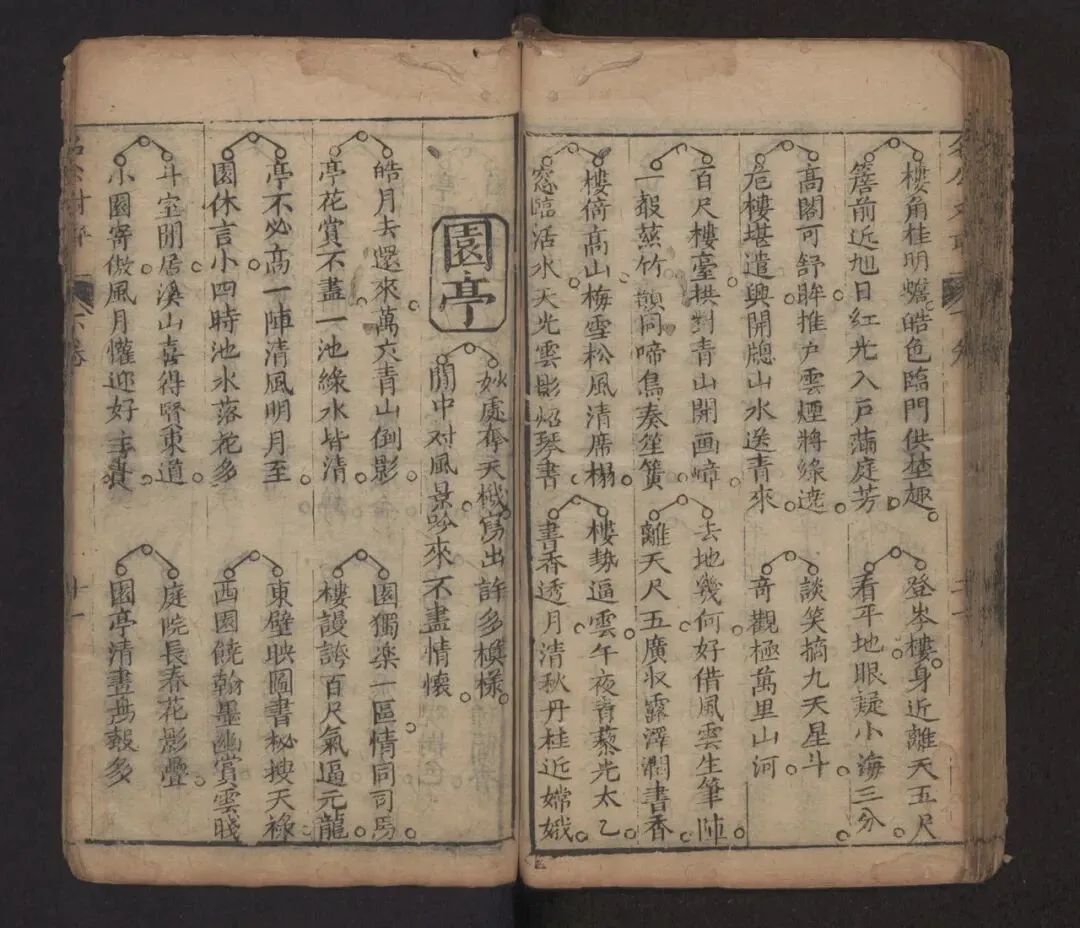 樓角桂明蟾皓色臨門供埜趣
簷前近旭日紅光入戶滿庭芳
登岑樓身近離天五尺
看平地眼疑小海三分
高閣可舒眸推户雲煙將綠遶
危樓堪遣興開牕山水送青來
談笑摘九天星斗
奇觀極萬里山河
百尺樓臺拱對青山開画幛
一慈竹同啼鳥奏笙簧
去地幾何好借風雲生筆陣
離天尺五廣収露澤潤書香
樓倚高山梅雪松風清席榻
窓臨活水天光雲影炤琴書
樓勢逼雲午夜青藜光太乙
書香透月清秋丹桂近嫦娥
園亭
妙處奪天機寫出許多模樣
閒中对風景吟來不盡情懷
皓月去還來萬青山倒影
亭花賞不盡一池綠水皆清
園獨楽一區情同司馬
樓謾誇百尺氣逼元龍
亭不必高一陣清風明月至
園休言小四時池水落花多
東壁映圖書秘搜天祿
西園饒翰墨幽賞雲牋
斗室閒居溪山喜得賢東道
小園寄傲風月懽迎好主賓
庭院長春花影疊
園亭清晝鳥聲多